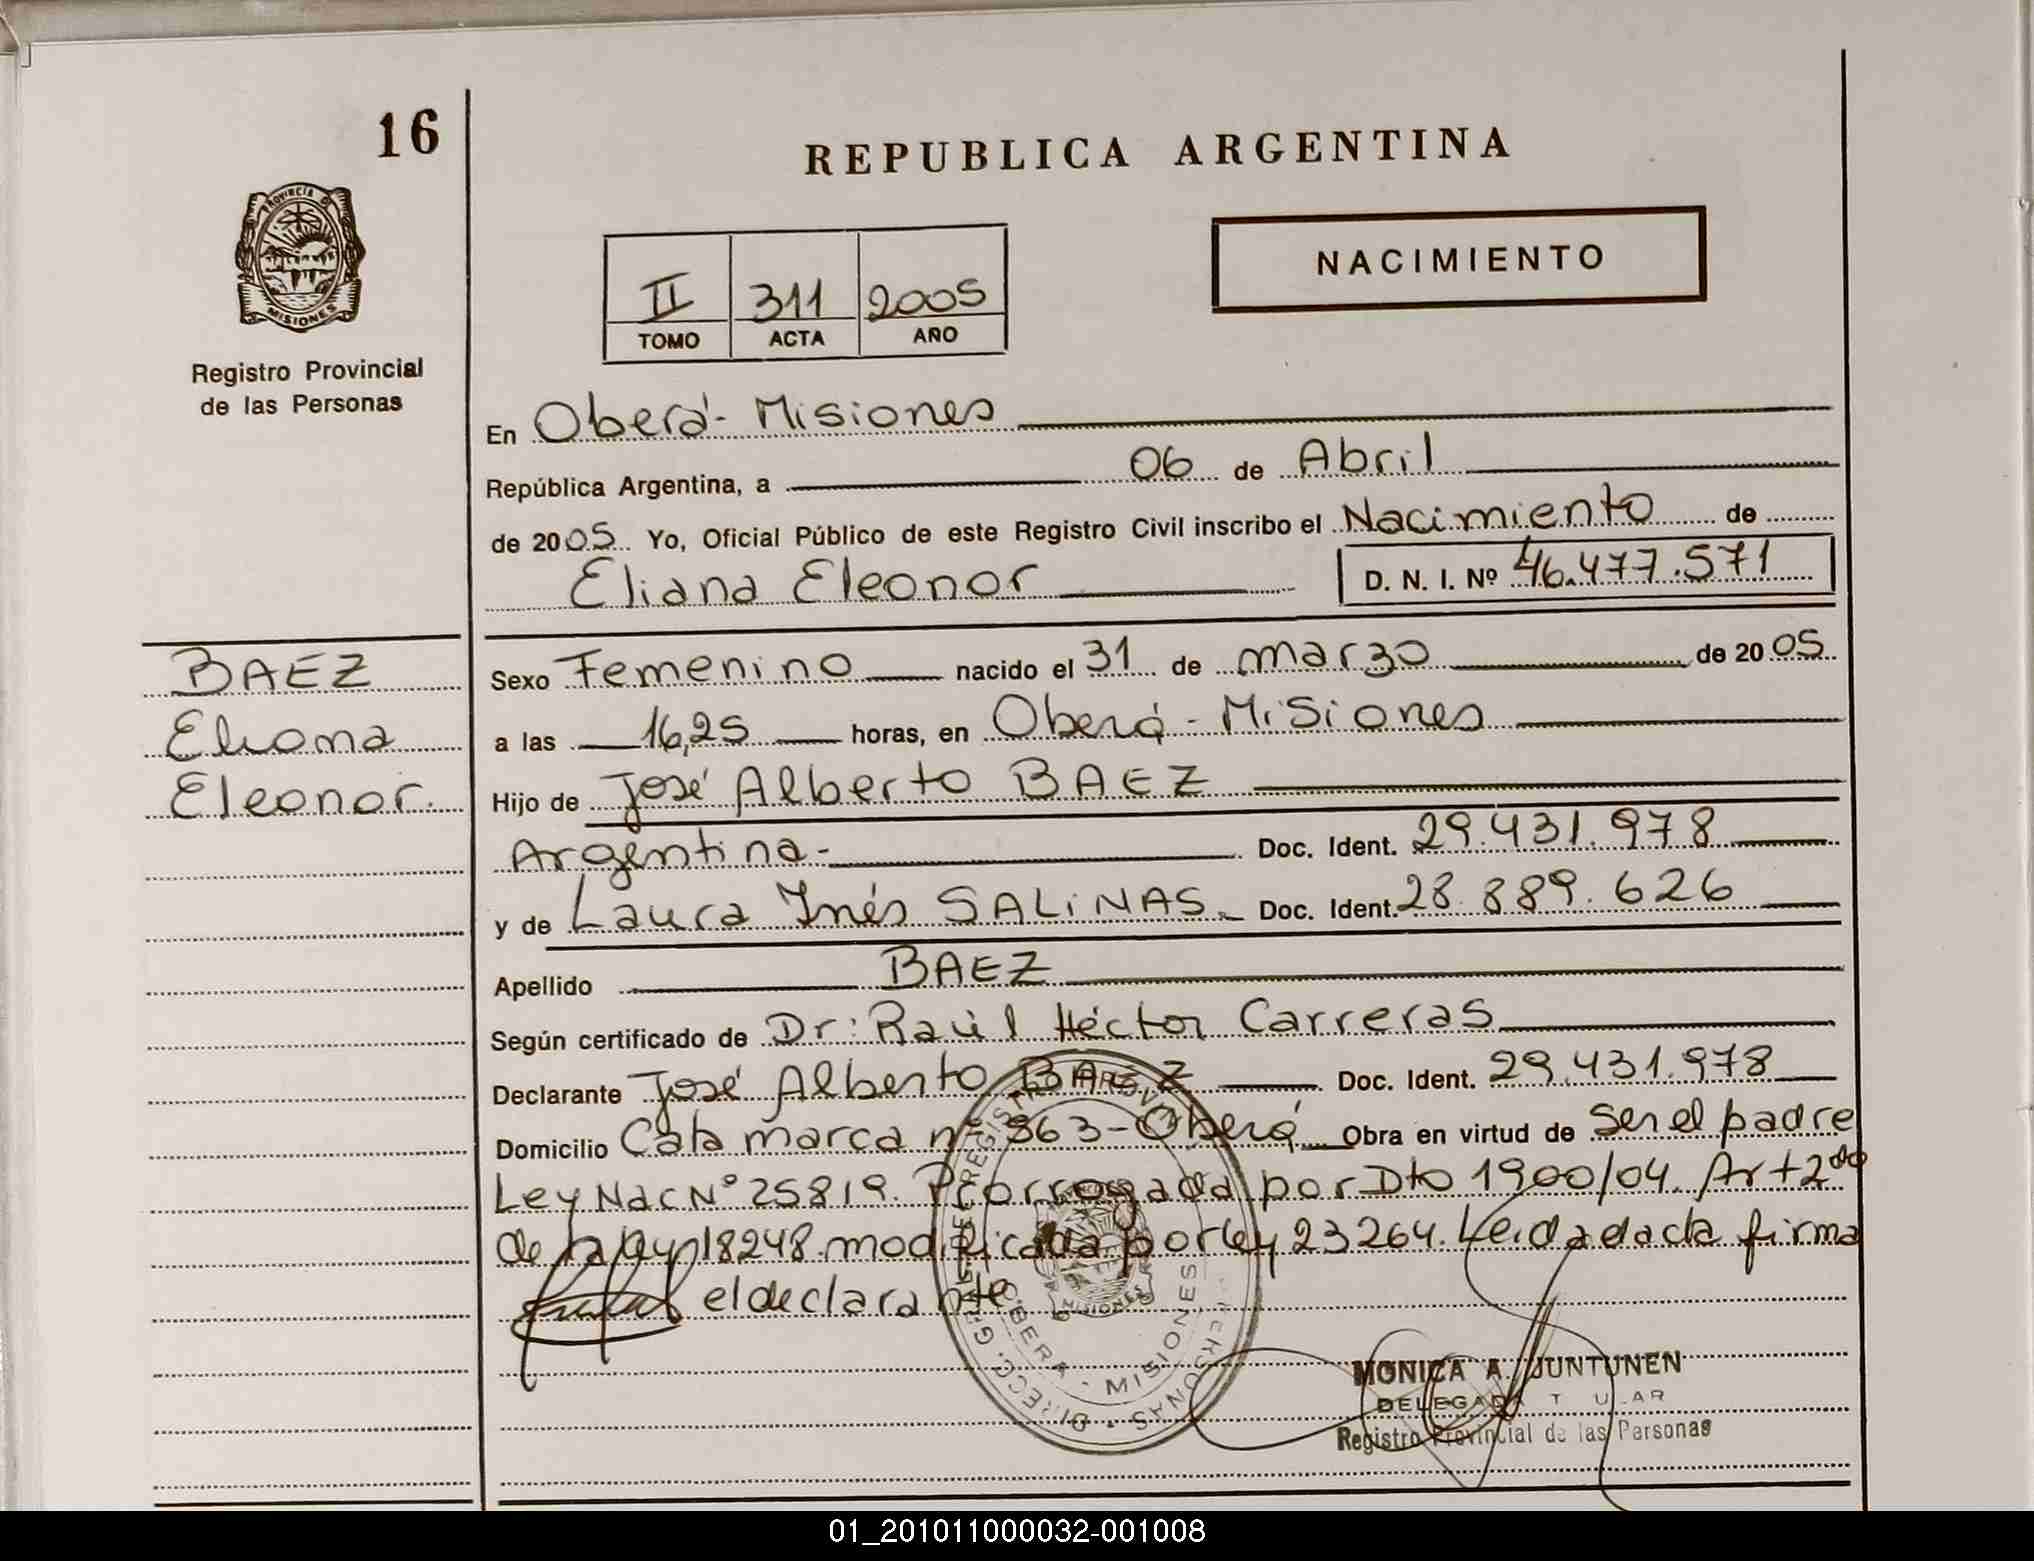 16
REPUBLICA ARGENTINA
PROVINCIA DE
MISIONES
Registro Provincial
de las Personas
II 311 2005
TOMO ACTA AÑO
NACIMIENTO
En Oberá - Misiones
República Argentina, a 06 de Abril
de 2005 Yo, Oficial Público de este Registro Civil inscribo el Nacimiento de
Eliana Eleonor D. N. I. Nº 46.477.571
BAEZ
Eliana
Eleonor.
Sexo Femenino nacido el 31 de marzo de 2005
a las 16,25 horas, en Oberá - Misiones
Hijo de José Alberto BAEZ
Argentina - Doc. Ident. 29.431.978
y de Laura Inés SALINAS. Doc. Ident. 28.889.626
Apellido BAEZ
Según certificado de Dr: Raúl Héctor Carreras
Declarante José Alberto BAEZ Doc. Ident. 29.431.978
Domicilio Catamarca nº 863 - Oberá Obra en virtud de ser el padre
Ley Nac Nº 25819. Prorrogada por Dto 1900/04. Art 2do
de la ley 18248 modificada por ley 23264. Leida el acta firma
el declarante
OBERA - MISIONES
MONICA A. JUNTUNEN
DELEGADA TITULAR
Registro Provincial de las Personas
01_201011000032-001008